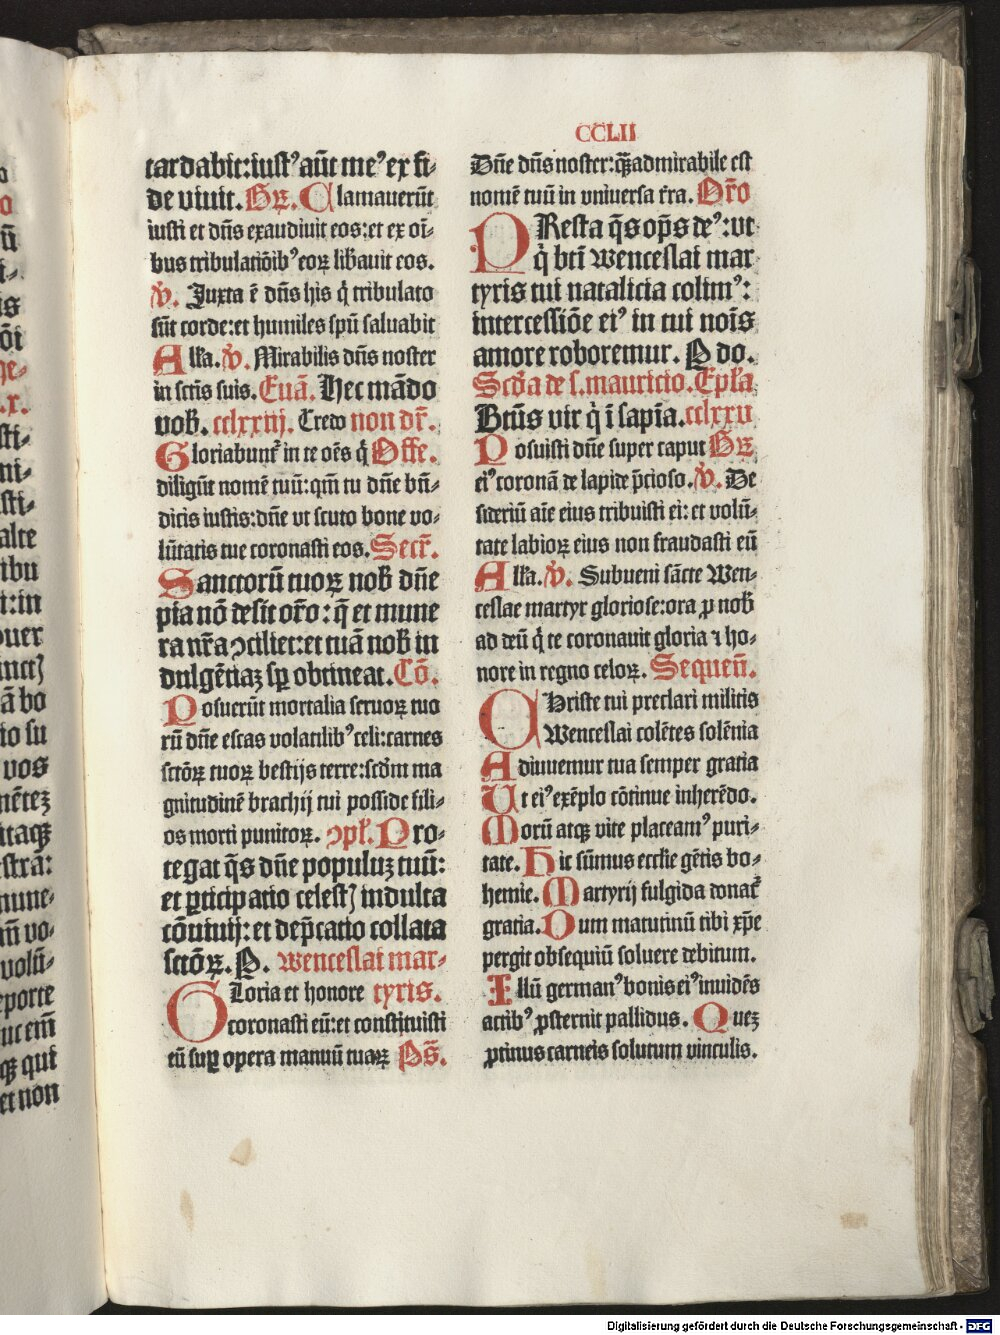 CCLII
tardabit:iustꝰ aūt meꝰ ex fi-
de viuit. Gꝝ. Clamauerūt
iusti et dn̄s exaudiuit eos:et ex oī-
bus tribulatiōibꝰ eoꝝ lib̄auit eos.
v̄. Juxta ē dn̄s his q̇ tribulato
sūt corde:et humiles spū saluabit
Allꝭa. v̄. Mirabilis dn̄s noster
in sctīs suis. Euā. Hec mādo
vob̄. cclxxiij. Credo non dr̄.
Gloriabunt᷑ in te oēs q̇ Offe.
diligūt nomē tuū:qm̄ tu dn̄e bn̄-
dicis iustis:dn̄e vt scuto bone vo-
lūtatis tue coronasti eos. Secr̄.
Sanctorū tuoꝝ nob̄ dn̄e
pia nō desit or̄o: q̄ et mune
ra nr̄a ↄciliet:et tuā nob̄ in
dulgētiaꝫ sꝑ obtineat. Cō.
Posuerūt mortalia seruoꝝ tuo
rū dn̄e escas volatilibꝰ celi:carnes
sctōꝝ tuoꝝ bestijs terre:scd̄m ma
gnitudinē brachij tui posside fili-
os morti punitoꝝ. ↄpl̄. Pro-
tegat q̄s dn̄e populuꝫ tuū:
et ꝑticipatio celestꝭ indulta
cōuiuij: et dep̄catio collata
sctōꝝ. P. Wenceslai mar-
Gloria et honore tyris.
coronasti eū:et constituisti
eū suꝑ opera manuū tuaꝝ Ps̄.
Dn̄e dn̄s noster:q̄ꝫ admirabile est
nomē tuū in vniuersa tr̄a. Or̄o
PResta q̄s op̄s deꝰ:vt
q̇ bt̄i Wenceslai mar
tyris tui natalicia colimꝰ:
intercessiōe eiꝰ in tui noīs
amore roboremur. P do.
Scd̄a de s. mauricio. Epl̄a
Btūs vir q̇ ī sapīa. cclxxv
Posuisti dn̄e super caput Gꝝ
eiꝰ coronā de lapide p̄cioso. v̄. De
sideriū aīe eius tribuisti ei: et volū-
tate labioꝝ eius non fraudasti eū
Allꝭa. v̄. Subueni sācte Wen-
ceslae martyr gloriose:ora ꝓ nob̄
ad deū q̇ te coronauit gloria ⁊ ho-
nore in regno celoꝝ. Sequen̄.
CHriste tui preclari militis
Wenceslai colētes solēnia
Adiuuemur tua semper gratia
Ut eiꝰ exēplo cōtinue inherēdo.
Morū atqꝫ vite placeamꝰ puri-
tate. Hic sūmus ecclie gētis bo-
hemie. Martyrij fulgida donat᷑
gratia. Dum matutinū tibi xp̄e
pergit obsequiū soluere debitum.
Illū germanꝰ bonis eiꝰ inuidēs
actibꝰ ꝓsternit pallidus. Quez
ꝓtinus carneis solutum vinculis.
Digitalisierung gefördert durch die Deutsche Forschungsgemeinschaft - DFG